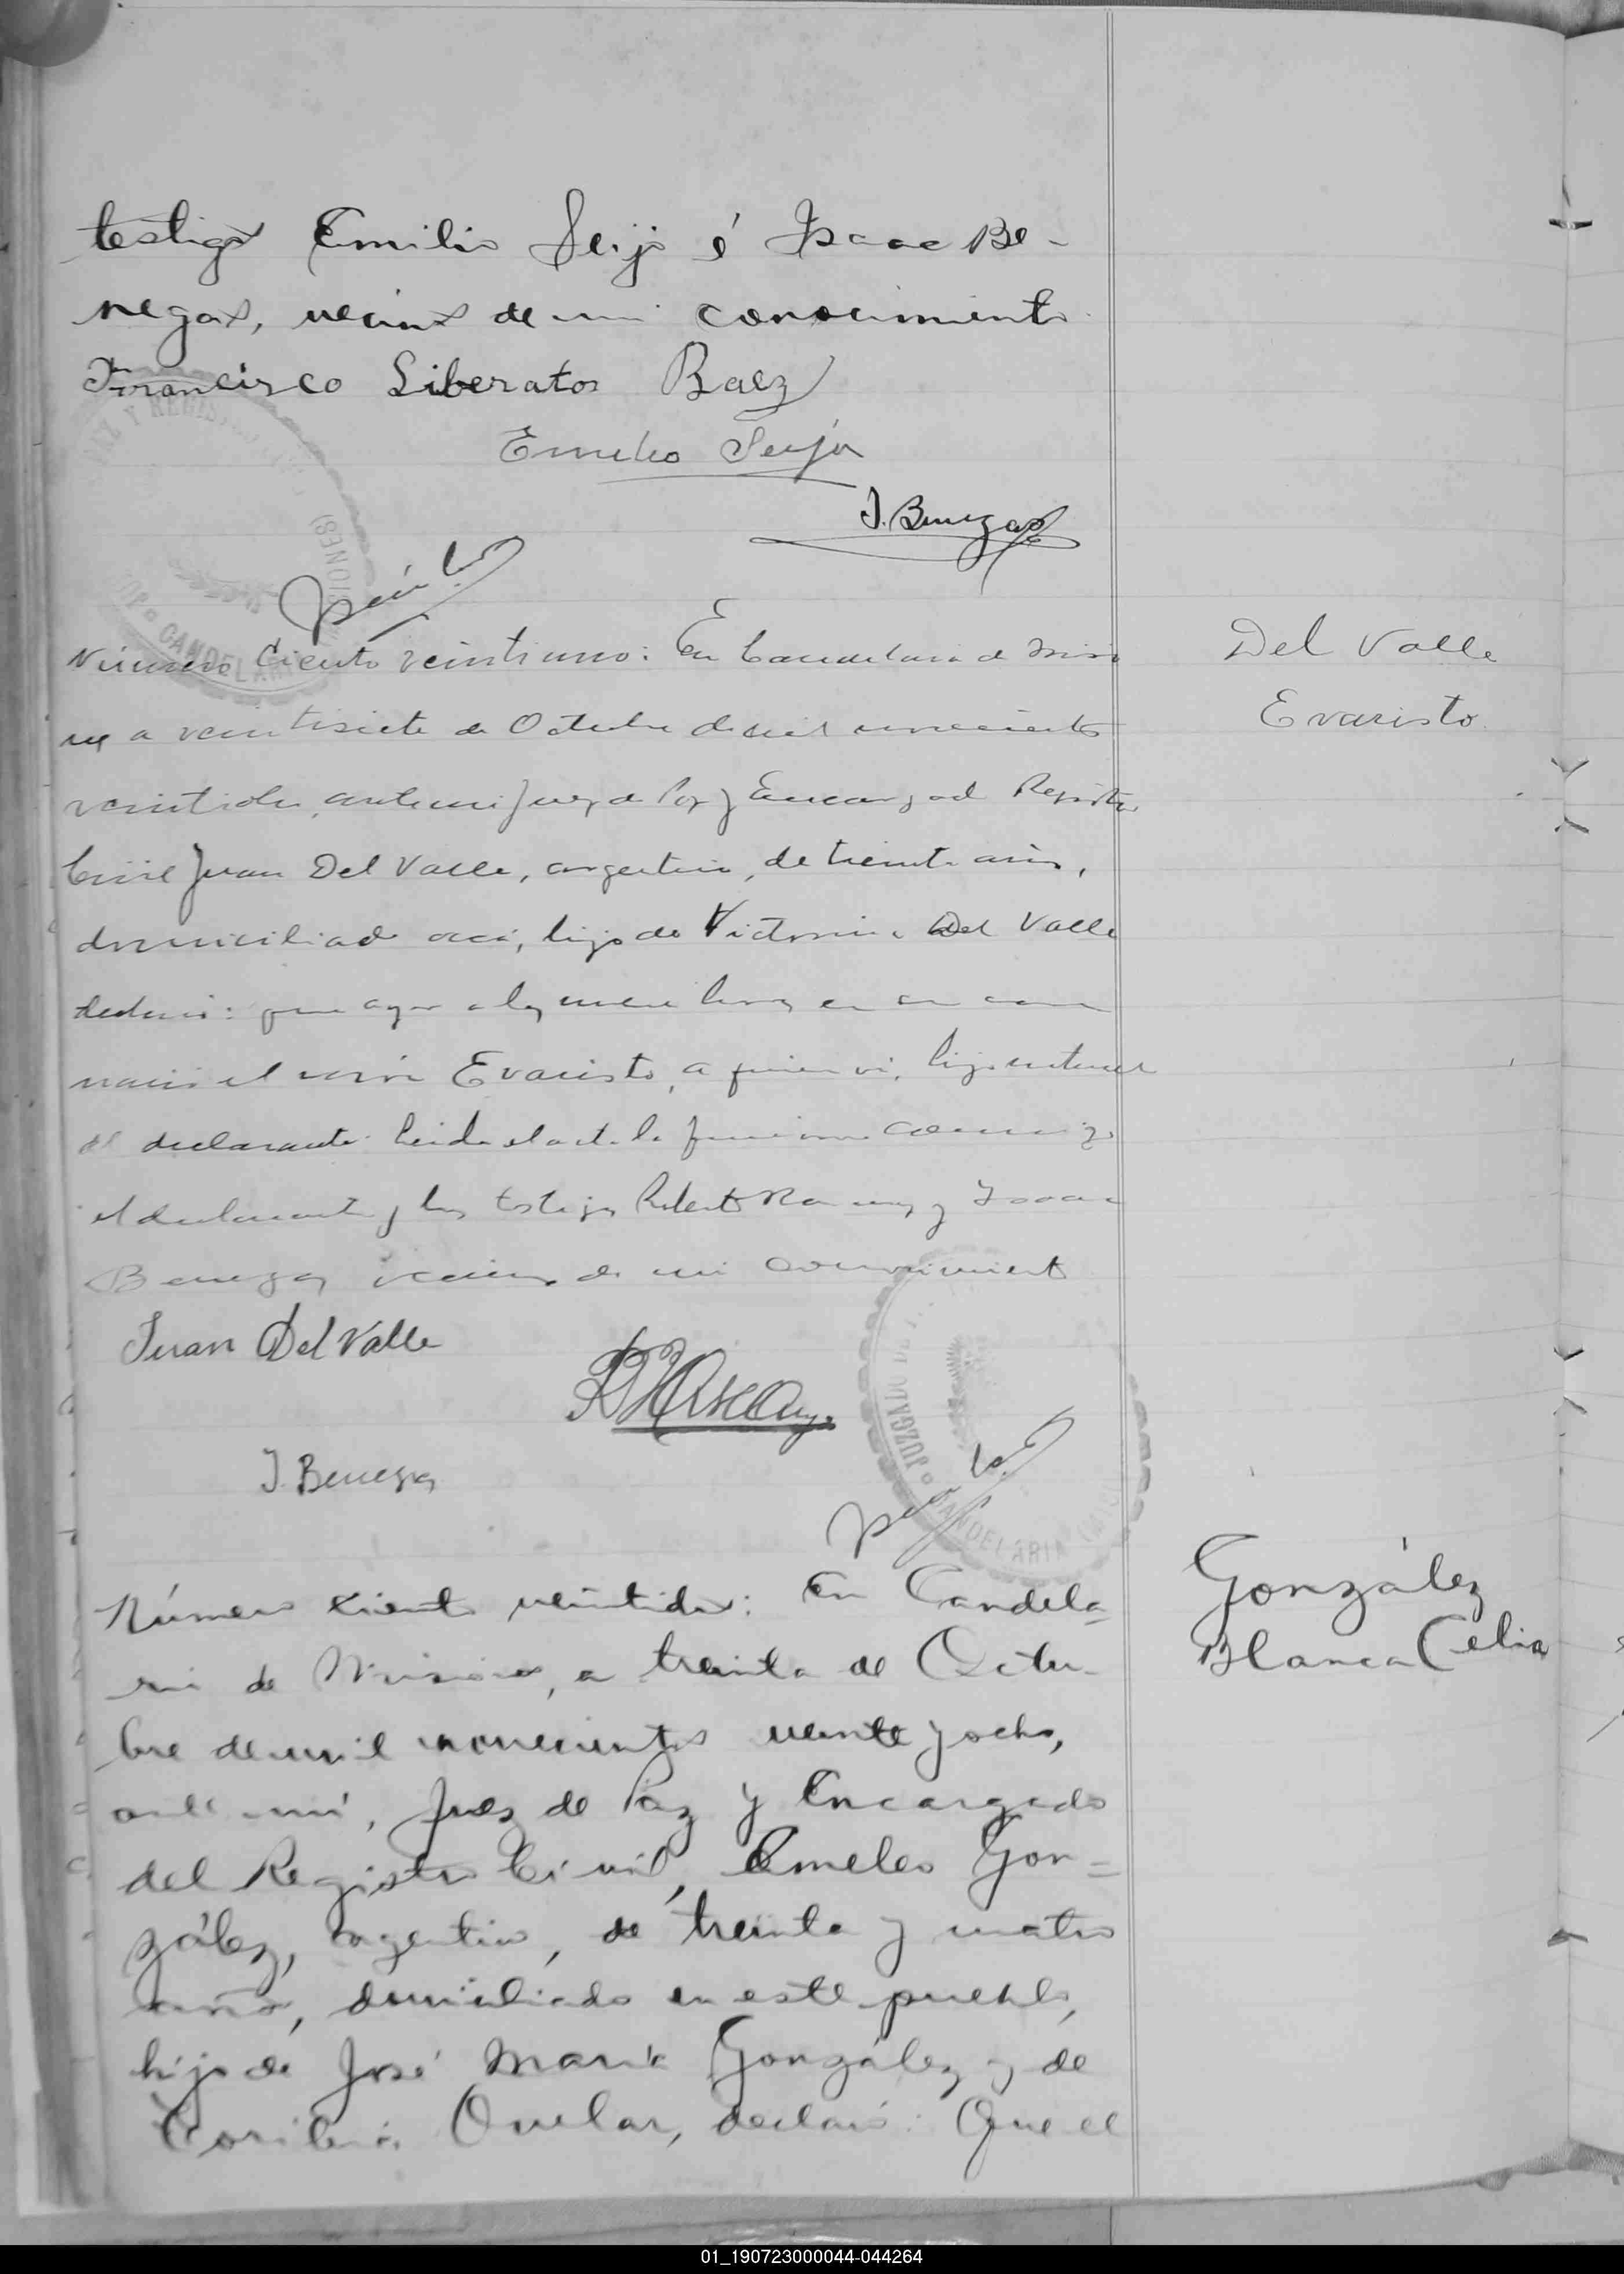 testigos Emilio Seijo é Isaac Be-
negas, vecinos de mi conocimiento.
Francisco Liberatos Baez
Emilio Seijo
J. Benegas
Número Ciento veintiuno: En Candelaria de Misio
nes a veintisiete de Octubre de mil novecientos
veintiocho, ante mi Juez de Paz y Encargado Registro
Civil Juan Del Valle, argentino, de treinta años,
domiciliado acá, hijo de Victorina Del Valle
declaró: que ayer a las nueve horas en su casa
nació el varón Evaristo, a quien vi, hijo natural
del declarante. Leida el acta la firmaron conmigo
el declarante y los testigos Roberto y Isaac
Benegas vecinos de mi conocimiento
Juan Del Valle
J. Benegas
JUZGADO DE
CANDELARIA
Número ciento veintidos: En Candela-
ria de Misiones, a treinta de Octu-
bre de mil novecientos veinte y ocho,
ante mí, Juez de Paz y Encargado
del Registro Civil, Gon=
zález, argentino, de treinta y cuatro
años, domiciliado en este pueblo,
hijo de José María González y de
Ovelar, declaró: Que el
Del Valle
Evaristo
González
Blanca Celia
01_190723000044-044264